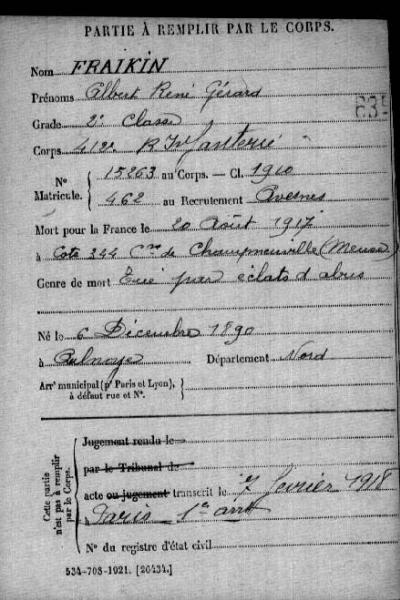 PARTIE À REMPLIR PAR LE CORPS.
Nom FRAIKIN
Prénoms Albert René Gérard
Grade 2e Classe
Corps 412e R Infanterie
N° Matricule. 15263 au Corps. — Cl. 1910
462 au Recrutement Avesnes
Mort pour la France le 20 Août 1917
à Cote 344 Cne de Champneuville (Meuse)
Genre de mort Tué par éclats d'obus
Né le 6 Décembre 1890
à Aulnoye Département Nord
Arrt municipal (pr Paris et Lyon), à défaut rue et N°.
Cette partie n'est pas à remplir par le Corps.
Jugement rendu le
par le Tribunal de
acte ou jugement transcrit le 7 février 1918
à Paris 1er arrt
N° du registre d'état civil
534-708-1921. [26434.]